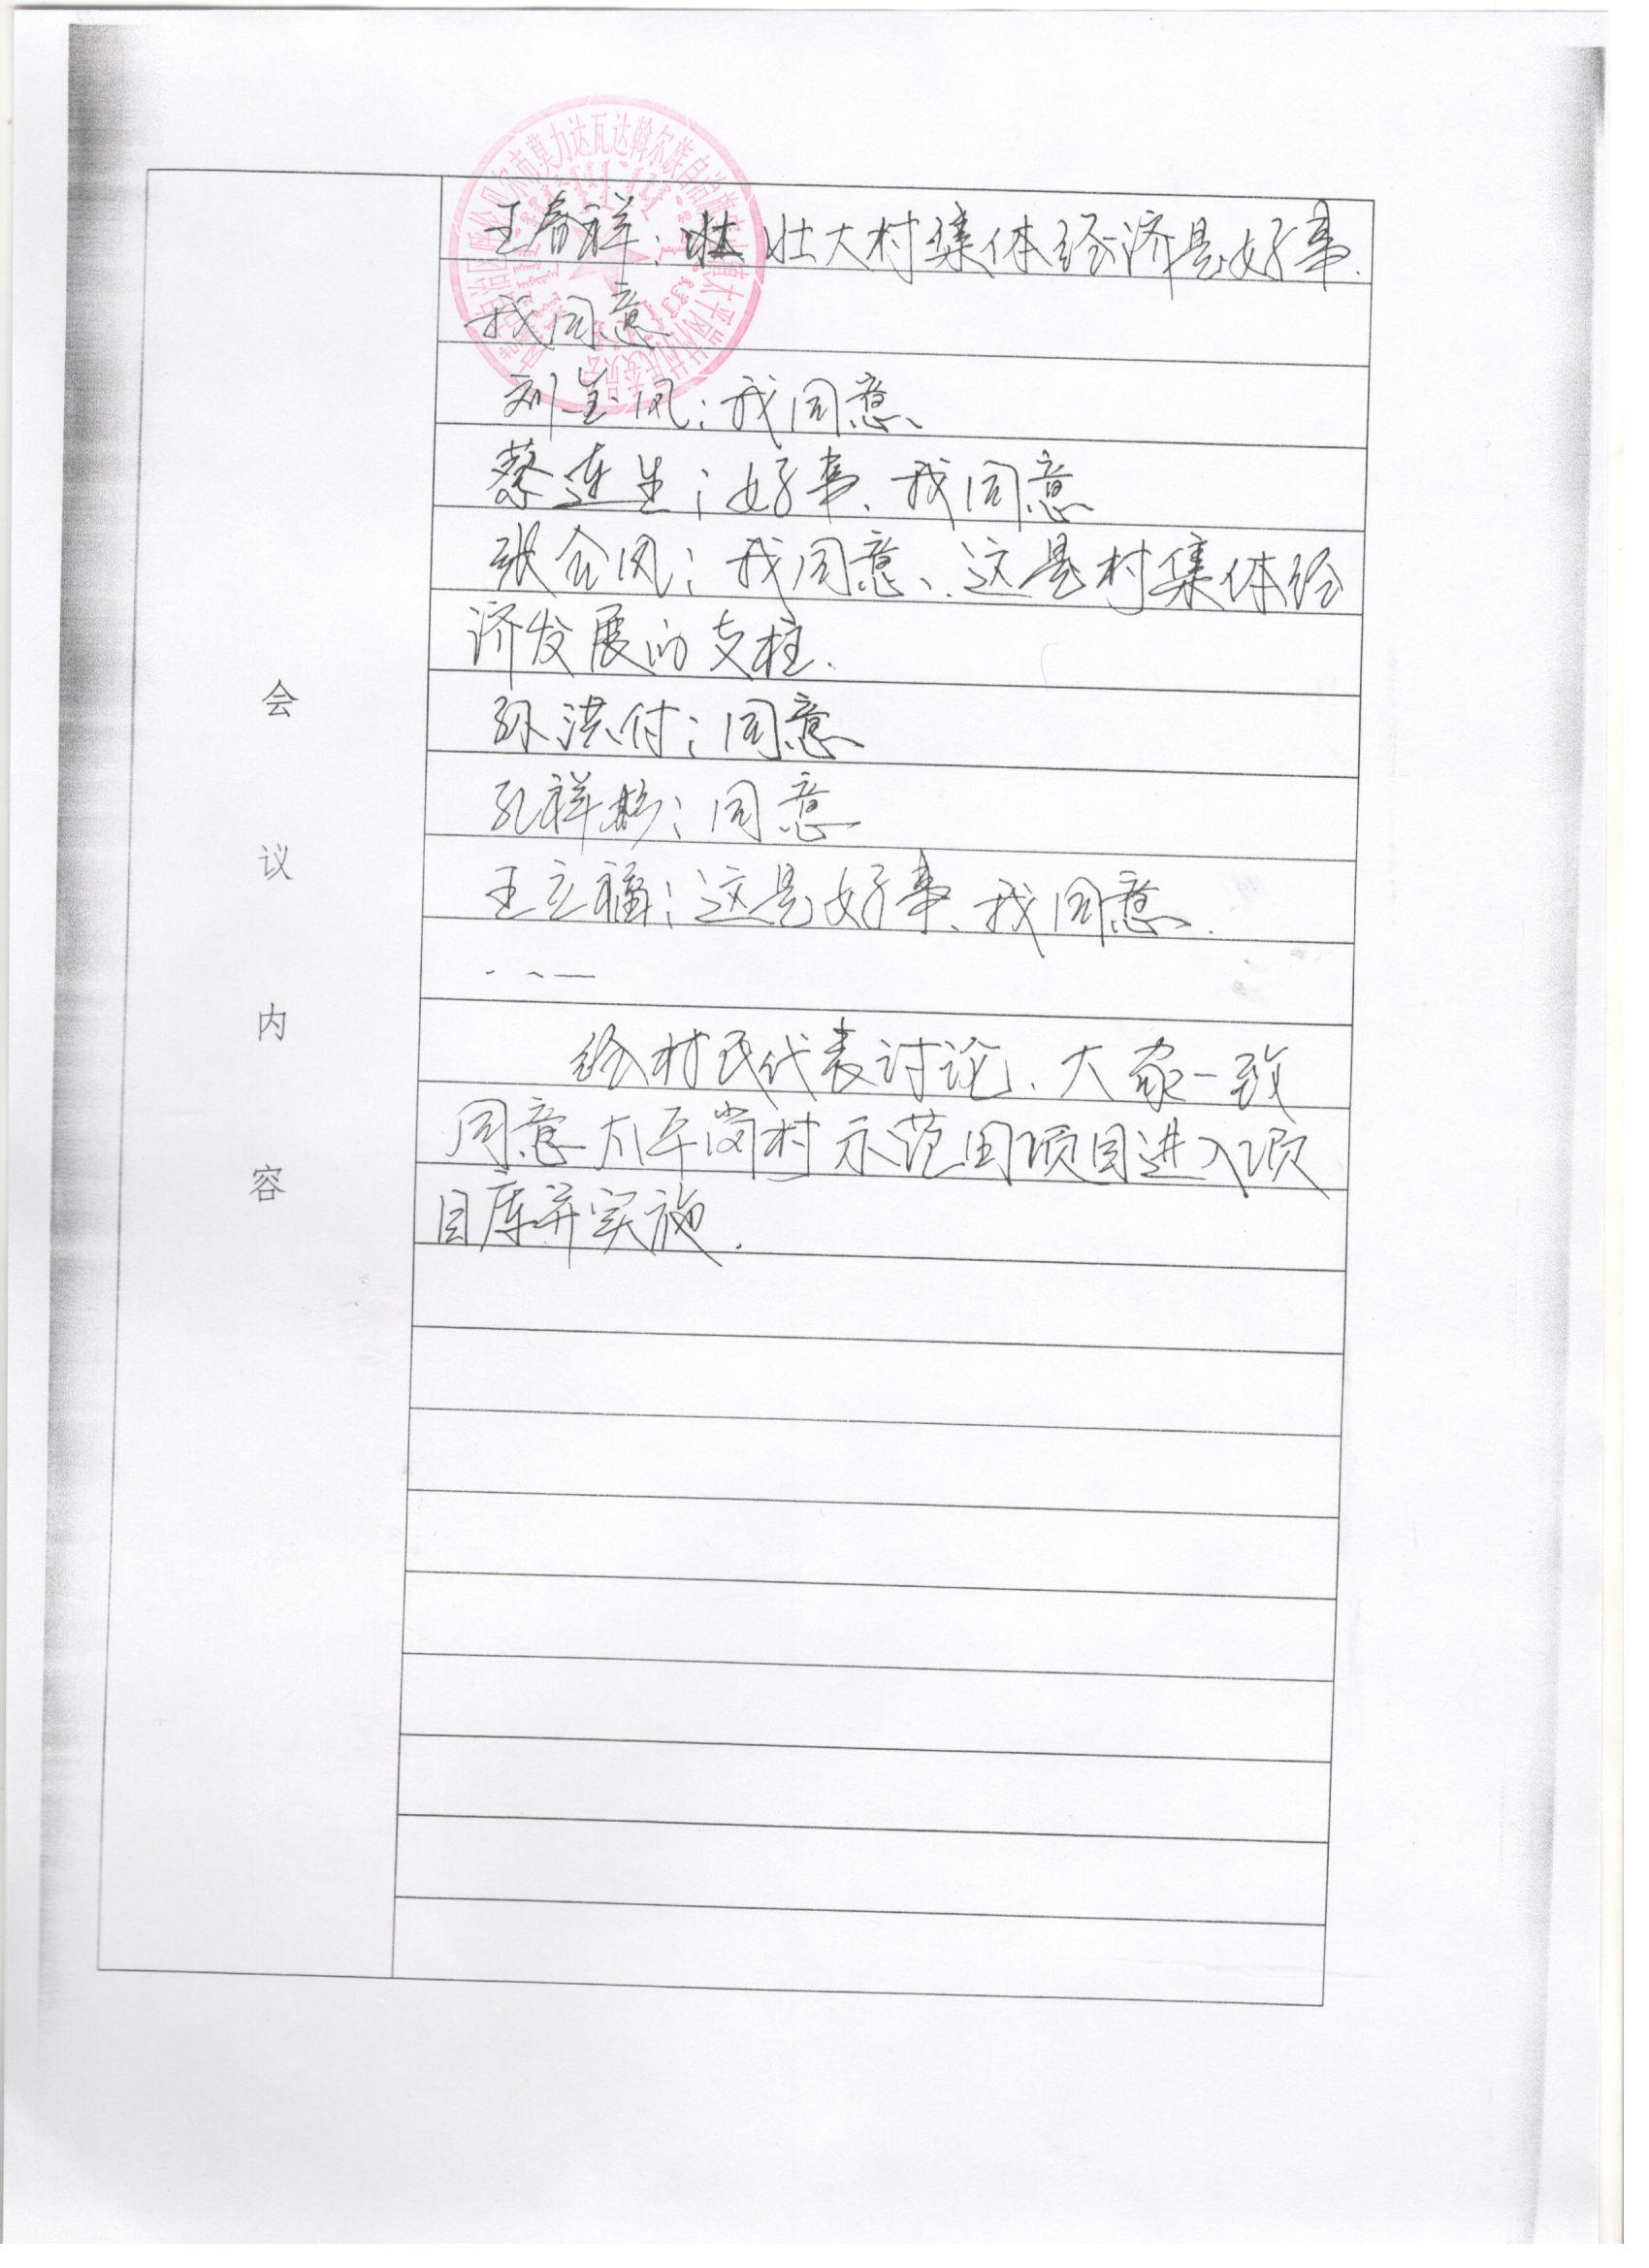 会议内容
王春祥：壮 壮大村集体经济是好事.
我同意
刘宝凤：我同意、
蔡连生：好事、我同意
张会凤：我同意、这是村集体经
济发展的支柱.
孙洪付：同意
孔祥彬：同意
王立福：这是好事、我同意.
经村民代表讨论、大家一致
同意太平岗村示范园项目进入项
目库并实施.
莫力达瓦达斡尔族自治旗